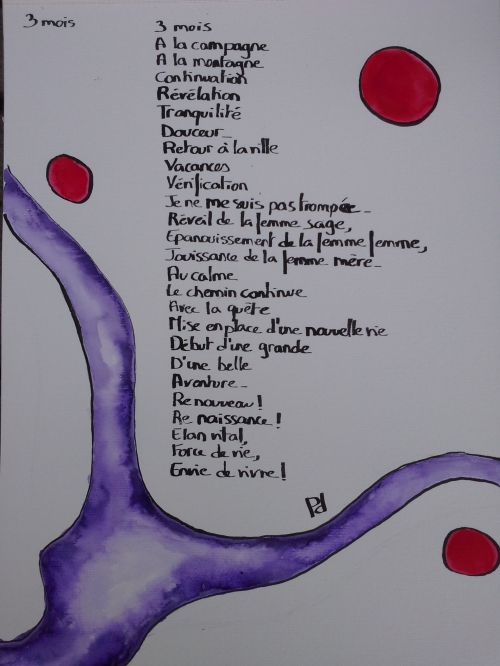 3 mois
3 mois
A la campagne
A la montagne
Continuation
Révélation
Tranquilité
Douceur_
Retour à la ville
Vacances
Vérification
Je ne me suis pas trompée_
Réveil de la femme sage,
Epanouissement de la femme femme,
Jouissance de la femme mère_
Au calme
Le chemin continue
Avec la quête
Mise en place d'une nouvelle vie
Début d'une grande
D'une belle
Avanture_
Renouveau!
Re naissance!
Elan vital,
Force de vie,
Envie de vivre!
Pd